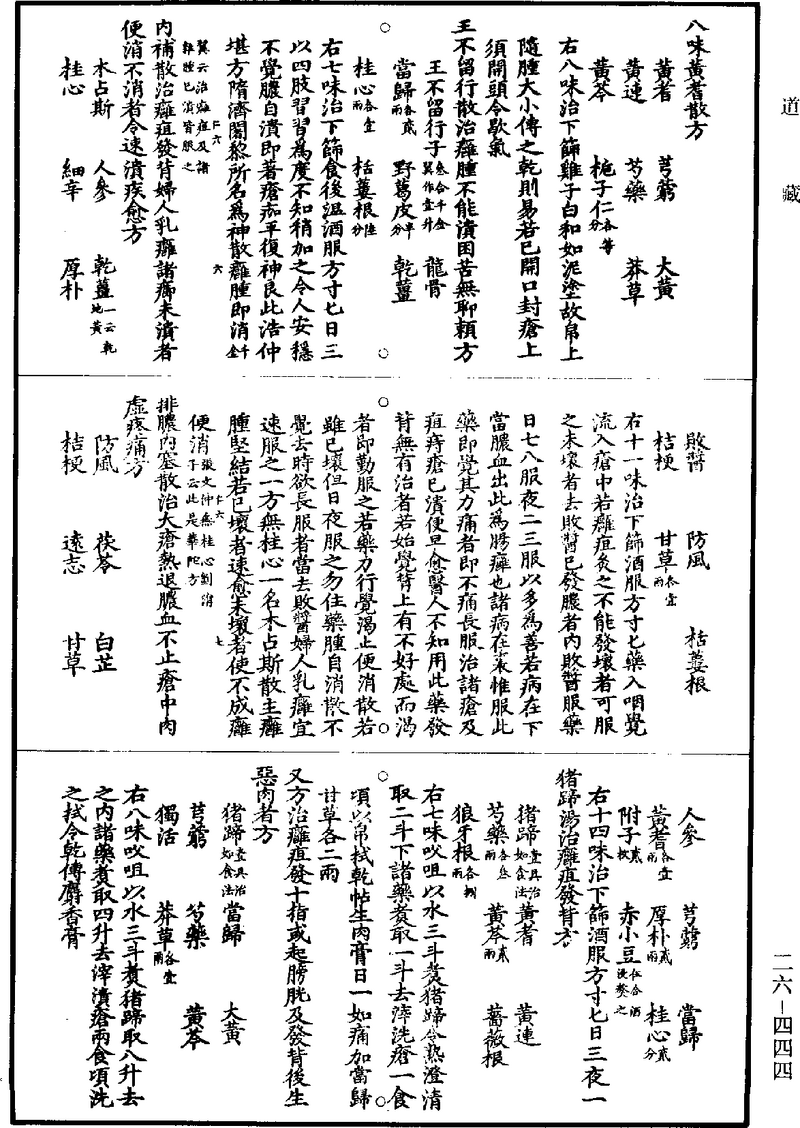 道藏
八味黃耆散方
黃耆 芎藭 大黃
黃連 芍藥 莽草
黃芩 梔子仁各等分
右八味治下篩雞子白和如泥塗故帛上
隨腫大小傅之乾則易若已開口封瘡上
須開頭令歇氣
王不留行散治癰腫不能潰困苦無聊賴方
王不留行子叁合千金翼作壹升 龍骨
當歸各貳兩 野葛皮半分 乾薑
桂心各壹兩 栝蔞根陸分
右七味治下篩食後溫酒服方寸匕日三
以四肢習習為度不知稍加之令人安穩
不覺膿自潰即著瘡痂平復神良此浩仲
堪方隋濟闍黎所名為神散癰腫即消千金
翼云治癰疽及諸雜腫已潰皆服之
廿六 六
內補散治癰疽發背婦人乳癰諸癤未潰者
便消不消者令速潰疾愈方
木占斯 人參 乾薑一云乾地黃
桂心 細辛 厚朴
敗醬 防風 栝蔞根
桔梗 甘草各壹兩
右十一味治下篩酒服方寸匕藥入咽覺
流入瘡中若癰疽灸之不能發壞者可服
之未壞者去敗醬已發膿者內敗醬服藥
日七八服夜二三服以多為善若病在下
當膿血出此為腸癰也諸病在裏惟服此
藥即覺其力痛者即不痛長服治諸瘡及
疽痔瘡已潰便早愈醫人不知用此藥發
背無有治者若始覺背上有不好處而渴
者即勤服之若藥力行覺渴止便消散若
雖已壞但日夜服之勿住藥腫自消散不
覺去時欲長服者當去敗醬婦人乳癰宜
速服之一方無桂心一名木占斯散主癰
腫堅結若已壞者速愈未壞者使不成癰
便消張文仲無桂心劉涓子云此是華佗方
廿六 七
排膿內塞散治大瘡熱退膿血不止瘡中肉
虛疼痛方
防風 茯苓 白芷
桔梗 遠志 甘草
人參 芎藭 當歸
黃耆各壹兩 厚朴貳兩 桂心貳分
附子貳枚 赤小豆伍合酒浸熬之
右十四味治下篩酒服方寸匕日三夜一
猪蹄湯治癰疽發背方
猪蹄壹具治如食法 黃耆 黃連
芍藥各叁兩 黃芩貳兩 薔薇根
狼牙根各捌兩
右七味㕮咀以水三斗煮猪蹄令熟澄清
取二斗下諸藥煮取一斗去滓洗瘡一食
頃以帛拭乾帖生肉膏日一如痛加當歸
甘草各二兩
又方治癰疽發十指或起膀胱及發背後生
惡肉者方
猪蹄壹具治如食法 當歸 大黃
芎藭 芍藥 黃芩
獨活 莽草各壹兩
右八味㕮咀以水三斗煮猪蹄取八升去
之內諸藥煮取四升去滓漬瘡兩食頃洗
之拭令乾傅麝香膏
二六－四四四